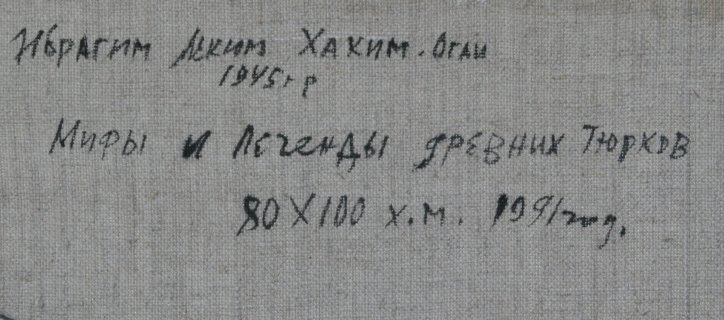 Ибрагим Аским Хаким. Оглы
1945 г р
Мифы и Легенды древних Тюрков
80 X 100 х.м. 1991 год.